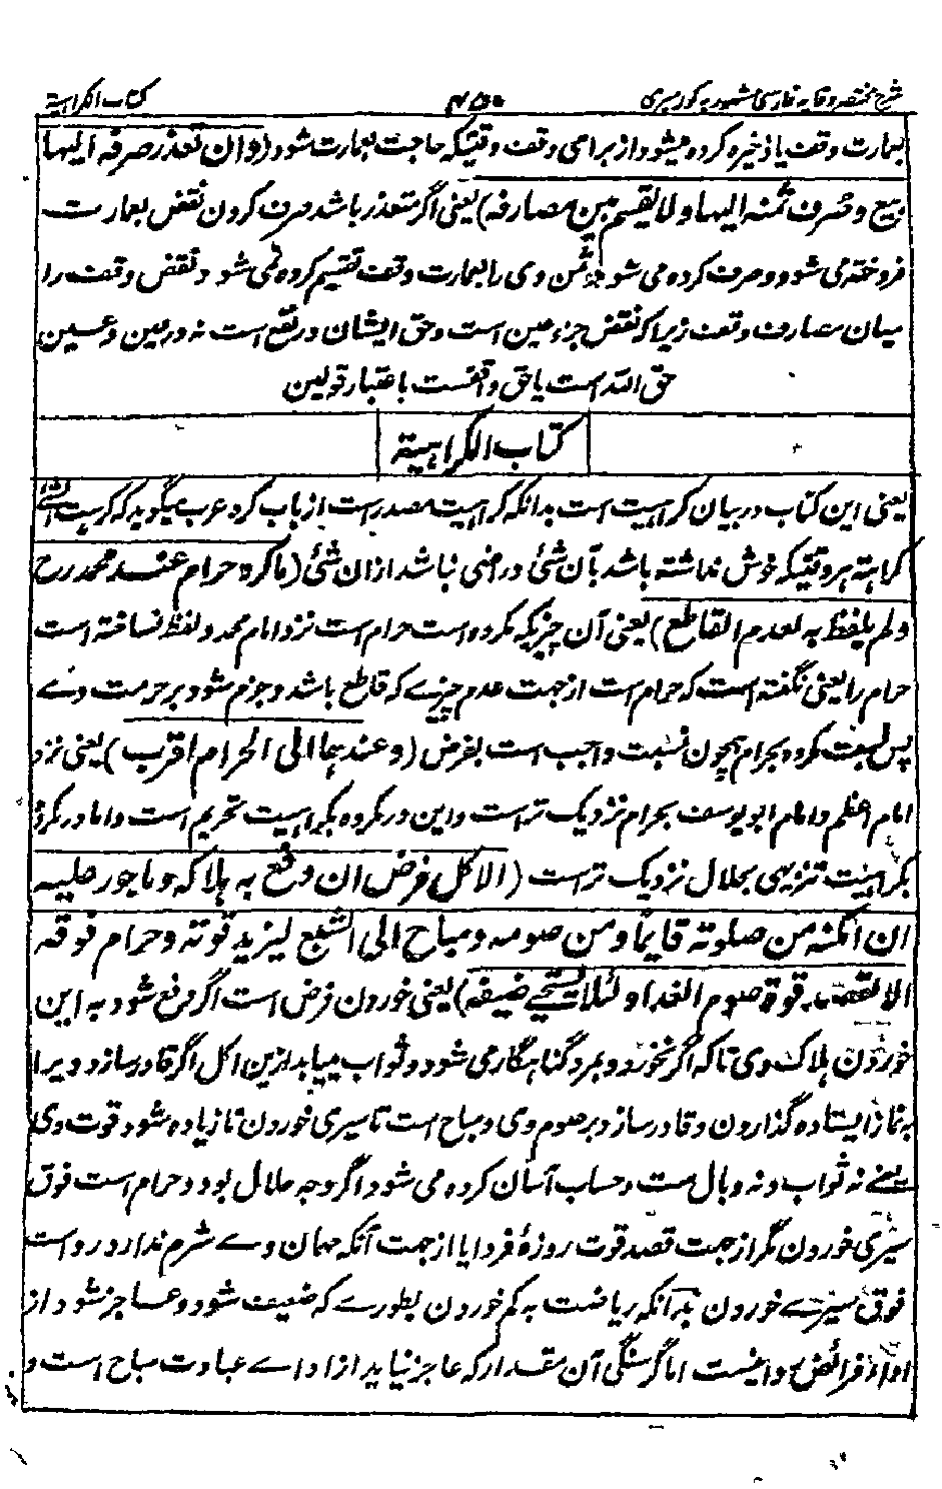 شرح مختصر وقایه فارسی مشهور به کورمیری
۴۵۰
کتاب الکراهیة
بعمارت وقف یا ذخیره کرده میشود از برای وقف وقتیکه حاجت بعمارت شود (وان تعذر صرفه الیها
بیع وصرف ثمنه الیها ولا یقسم بین مصارفه) یعنی اگر متعذر باشد صرف کردن نقض بعمارت
فروخته می شود و صرف کرده می شود ثمن وی را بعمارت وقف تقسیم کرده نمی شود نقض وقف را
میان مصارف وقف زیرا که نقض جزء عین است و حق ایشان در نفع است نه در عین و عین
حق الله است یا حق واقفست باعتبار قولین
کتاب الکراهیة
یعنی این کتاب در بیان کراهیت است بدانکه کراهیت مصدر است از باب کرد عرب میگوید که کرهت الشئ
کراهته هر وقتیکه خوش نداشته باشد بآن شئ و راضی نباشد ازان شئ (ما کره حرام عند محمد رح
ولم یلفظ به لعدم القاطع) یعنی آن چیزیکه مکروه است حرام است نزد امام محمد و لفظ نساخته است
حرام را یعنی نگفته است که حرام است از جهت عدم چیزے که قاطع باشد و جزم شود بر حرمت وے
پس نسبت مکروه بحرام همچون نسبت واجب است بفرض (وعندهما الی الحرام اقرب) یعنی نزد
امام اعظم و امام ابو یوسف بحرام نزدیک تر است و این در مکروه بکراهیت تحریم است و اما در مکروه
بکراهیت تنزیهی بحلال نزدیک تر است (الاکل فرض ان دفع به هلاکه وماجور علیه
ان امکنه من صلوته قایما ومن صومه ومباح الی الشبع لیزید قوته وحرام فوقه
الا لقصد قوة صوم الغد او لئلا یستحیے ضیفه) یعنی خوردن فرض است اگر دفع شود به این
خوردن هلاک وی تا که اگر نخورد و بمرد گناهگار می شود و ثواب مییابد ازین اکل اگر قادر سازد ویرا
به نماز ایستاده گذاردن و قادر سازد بر صوم وی و مباح است تا سیری خوردن تا زیاده شود قوت وی
یعنے نه ثواب و نه وبال است و حساب آسان کرده می شود اگر وجه حلال بود و حرام است فوق
سیری خوردن مگر از جهت قصد قوت روزهٔ فردا یا از جهت آنکه مهمان وے شرم ندارد رواست
فوق سیرے خوردن بدانکه ریاضت به کم خوردن بطورے که ضعیف شود و عاجز شود از
اداء فرائض روا نیست اما گرسنگی آن مقدار که عاجز نیاید از اداے عبادت مباح است و